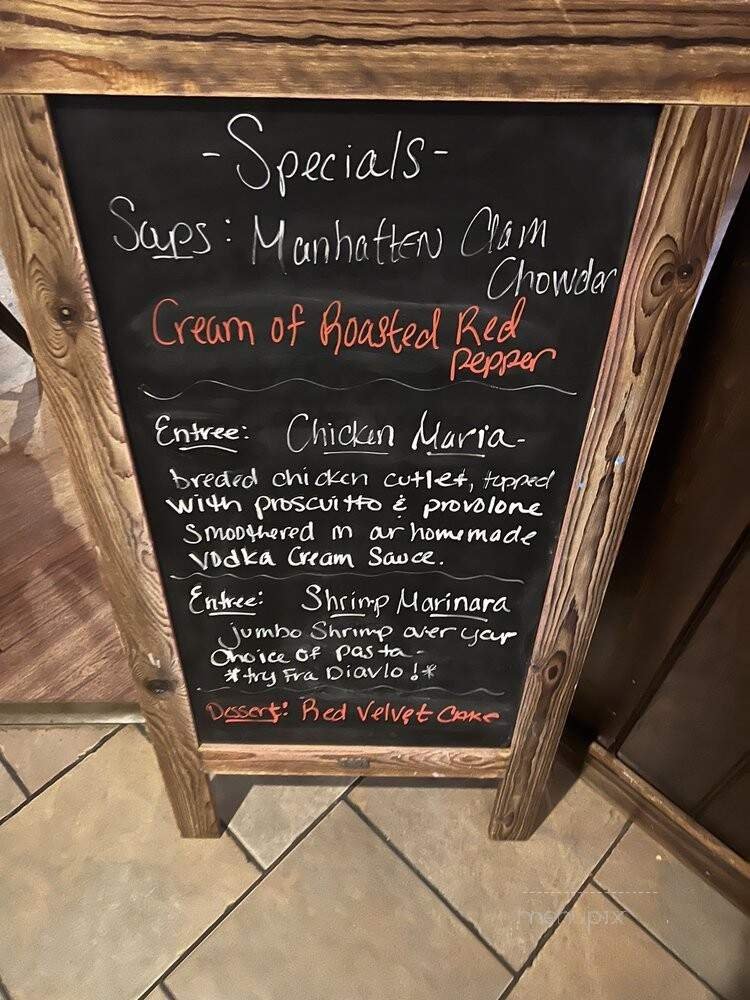 -Specials-
Soups: Manhatten Clam
Chowder
Cream of Roasted Red
Pepper
Entree: Chicken Maria-
breded chicken cutlet, topped
with proscuitto & provolone
Smoothered in our homemade
Vodka Cream Sauce.
Entree: Shrimp Marinara
Jumbo Shrimp over your
choice of pasta-
*try Fra Diavlo!*
Dessert: Red Velvet Cake
menupix